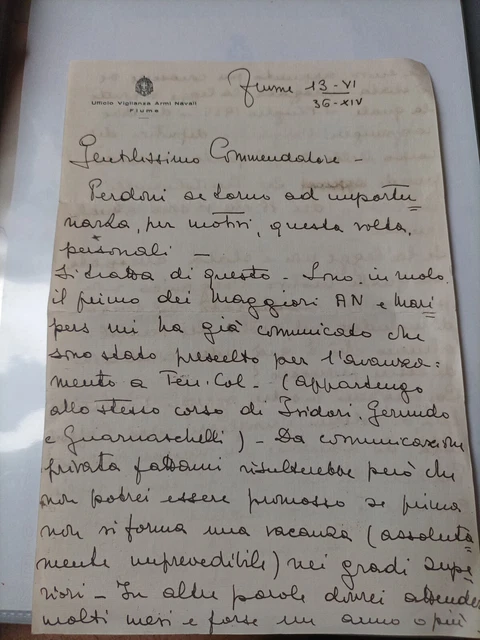 Ufficio Vigilanza Armi Navali
Fiume
Fiume 13-VI
36-XIV
Gentilissimo Commendatore -
Perdoni se torno ad importu=
narla, per motivi, questa volta,
personali -
Si tratta di questo - Sono in ruolo
il primo dei Maggiori AN e Mari=
pers mi ha già comunicato che
sono stato prescelto per l'avanza=
mento a Ten. Col. - (appartengo
allo stesso corso di Isidori, Gerundo
e Guarnaschelli) - Da comunicazione
privata fattami risulterebbe però che
non potrei essere promosso se prima
non si forma una vacanza (assoluta=
mente imprevedibile) nei gradi supe=
riori - In altre parole dovrei attendere
molti mesi e forse un anno o più